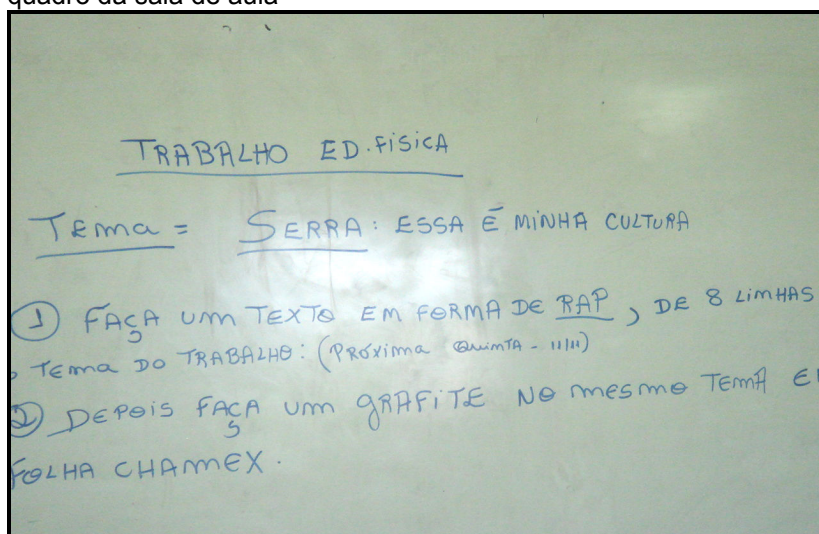 quadro da sala de aula
TRABALHO ED. FÍSICA
TEMA = SERRA: ESSA É MINHA CULTURA
① FAÇA UM TEXTO EM FORMA DE RAP, DE 8 LIMHAS
TEMA DO TRABALHO: (PRÓXIMA QUINTA - 11/11)
② DEPOIS FAÇA UM GRAFITE NO MESMO TEMA
FOLHA CHAMEX.